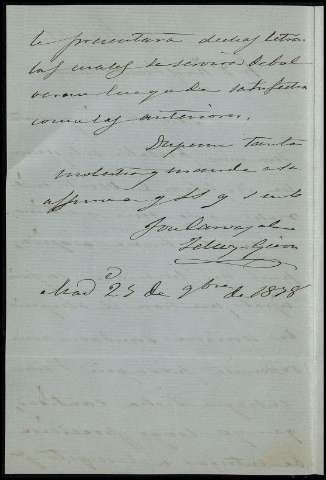 le presentara dichas letras
las cuales se servira debol
verme luego de satisfechas
como las anteriores.
Dispense tanta
molestia y mande a su
affmo a y SS q s m b
José Carvajal
Tellez-Giron
Mad 25 de 9bre de 1878